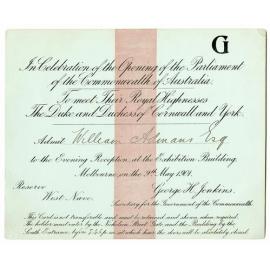 G
In Celebration of the Opening of the Parliament
of the Commonwealth of Australia.
To meet Their Royal Highnesses
The Duke and Duchess of Cornwall and York.
Admit William Admans Esq
to the Evening Reception, at the Exhibition Building,
Melbourne on the 9th May 1901.
Reserve
West Nave.
George H. Jenkins,
Secretary for the Government of the Commonwealth.
This Card is not transferable and must be retained and shewn when required.
The holder must enter by the Nicholson Street Gate and the Building by the
South Entrance before 7.45 p.m. at which hour the doors will be absolutely closed.